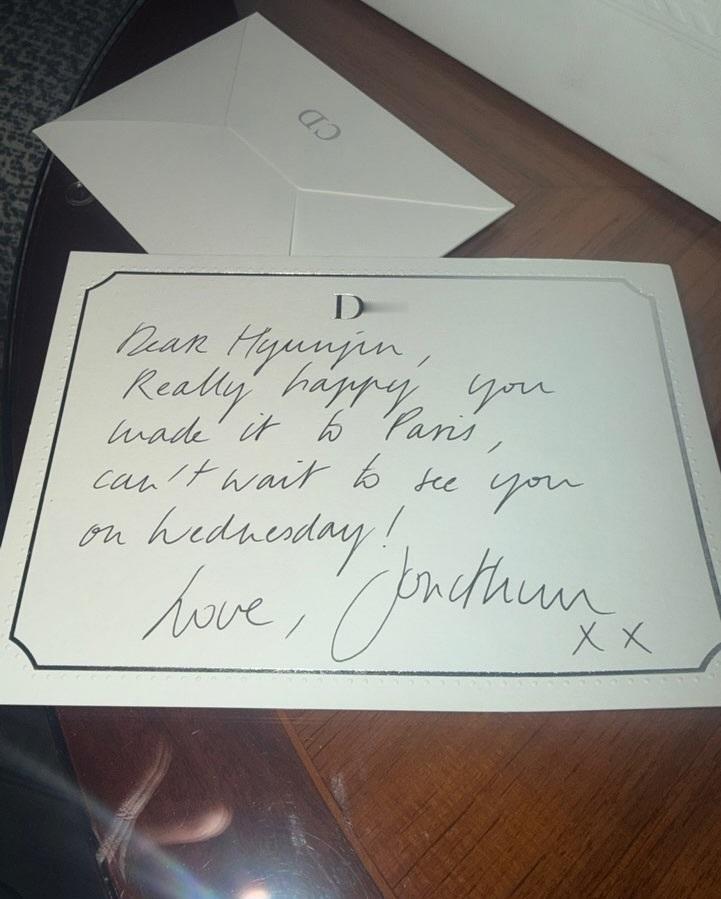 CD
D
Dear Hyunjin,
Really happy you
made it to Paris,
can't wait to see you
on Wednesday!
Love, Jonathan
x x